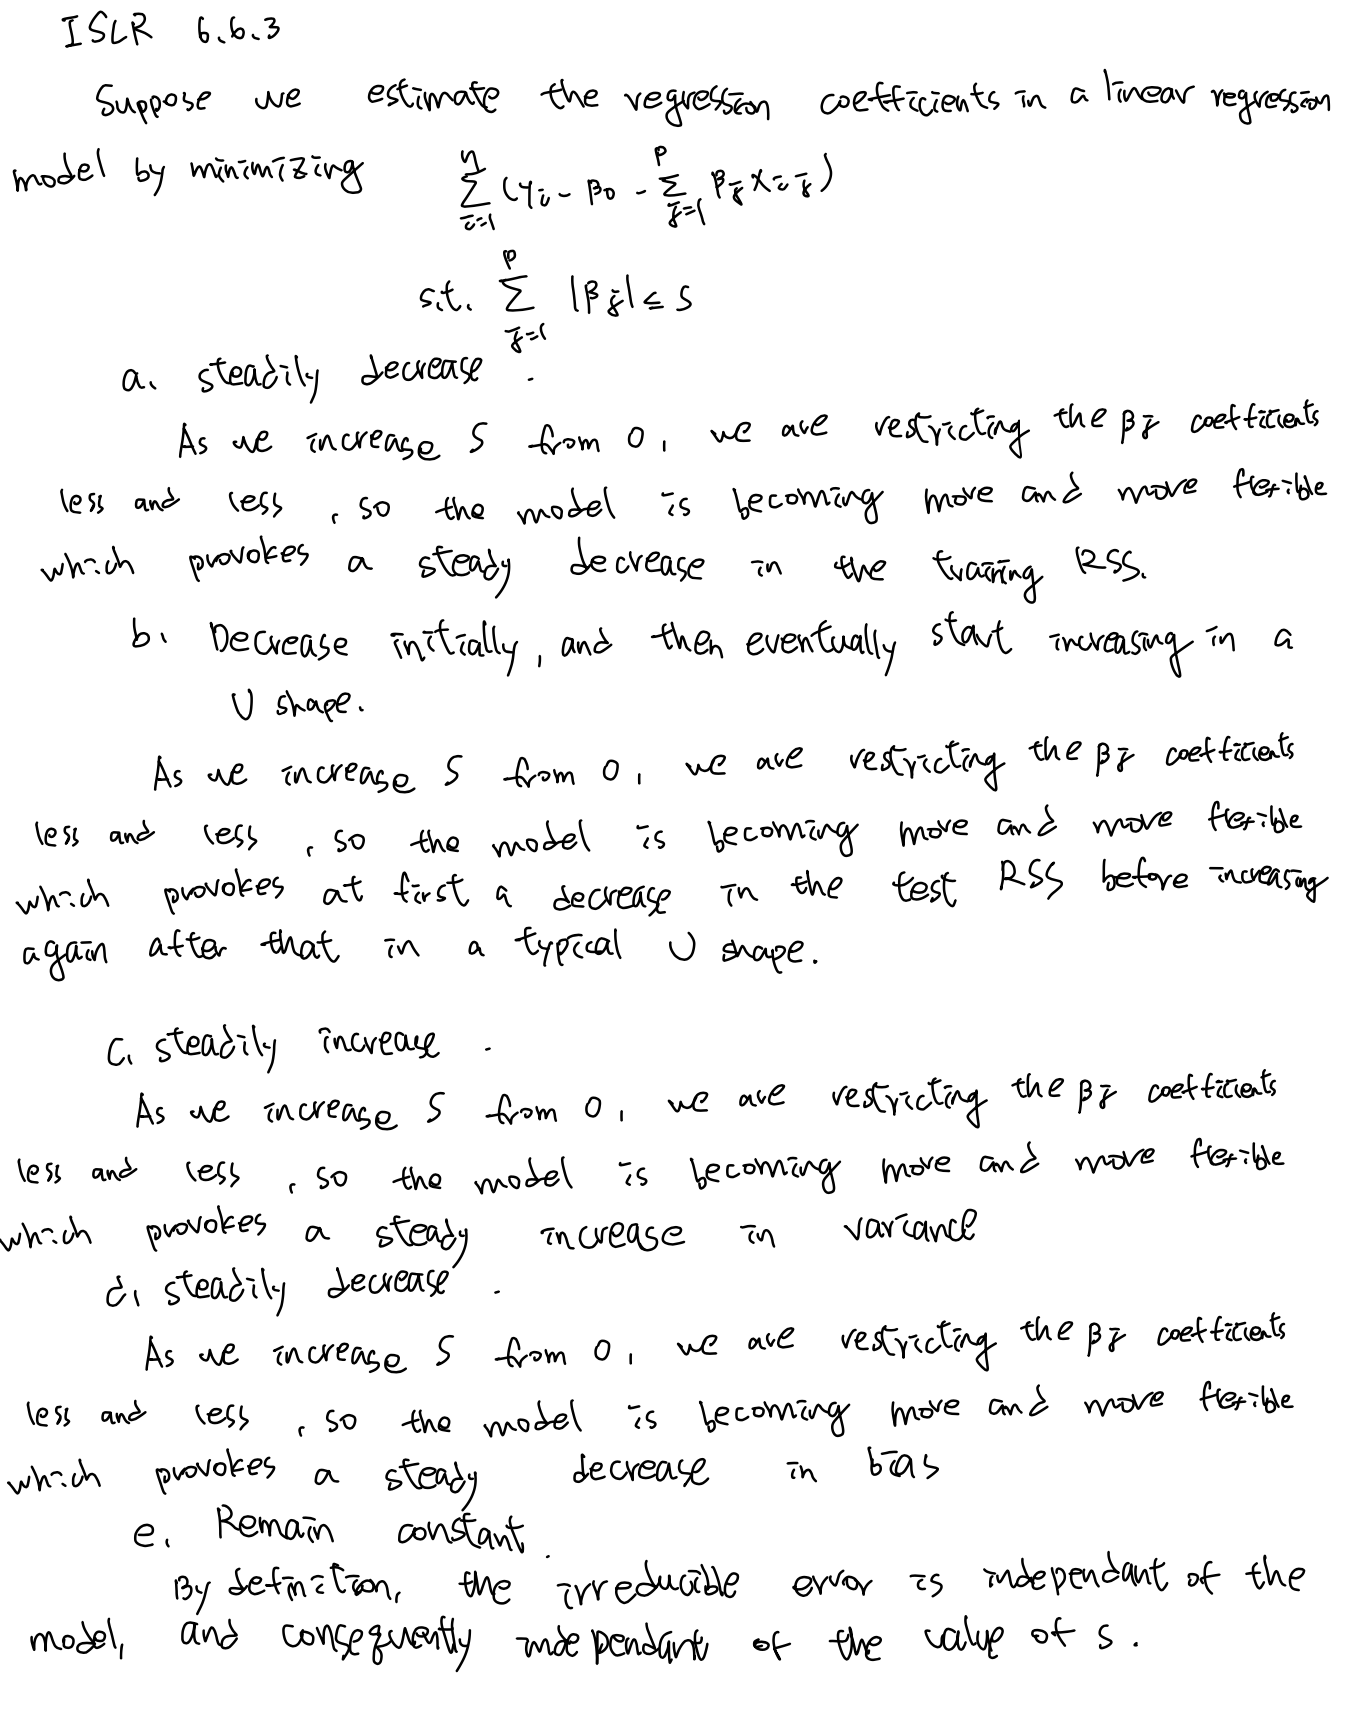 ISLR 6.6.3
Suppose we estimate the regression coefficients in a linear regression
model by minimizing \sum_{i=1}^{n} (y_i - β_0 - \sum_{j=1}^{p} β_j x_{ij})
s.t. \sum_{j=1}^{p} |β_j| ≤ s
a. steadily decrease.
As we increase s from 0, we are restricting the β_j coefficients
less and less, so the model is becoming more and more flexible
which provokes a steady decrease in the training RSS.
b. Decrease initially, and then eventually start increasing in a
U shape.
As we increase s from 0, we are restricting the β_j coefficients
less and less, so the model is becoming more and more flexible
which provokes at first a decrease in the test RSS before increasing
again after that in a typical U shape.
c. steadily increase.
As we increase s from 0, we are restricting the β_j coefficients
less and less, so the model is becoming more and more flexible
which provokes a steady increase in variance
d. steadily decrease.
As we increase s from 0, we are restricting the β_j coefficients
less and less, so the model is becoming more and more flexible
which provokes a steady decrease in bias
e. Remain constant.
By definition, the irreducible error is independant of the
model, and consequently independant of the value of s.